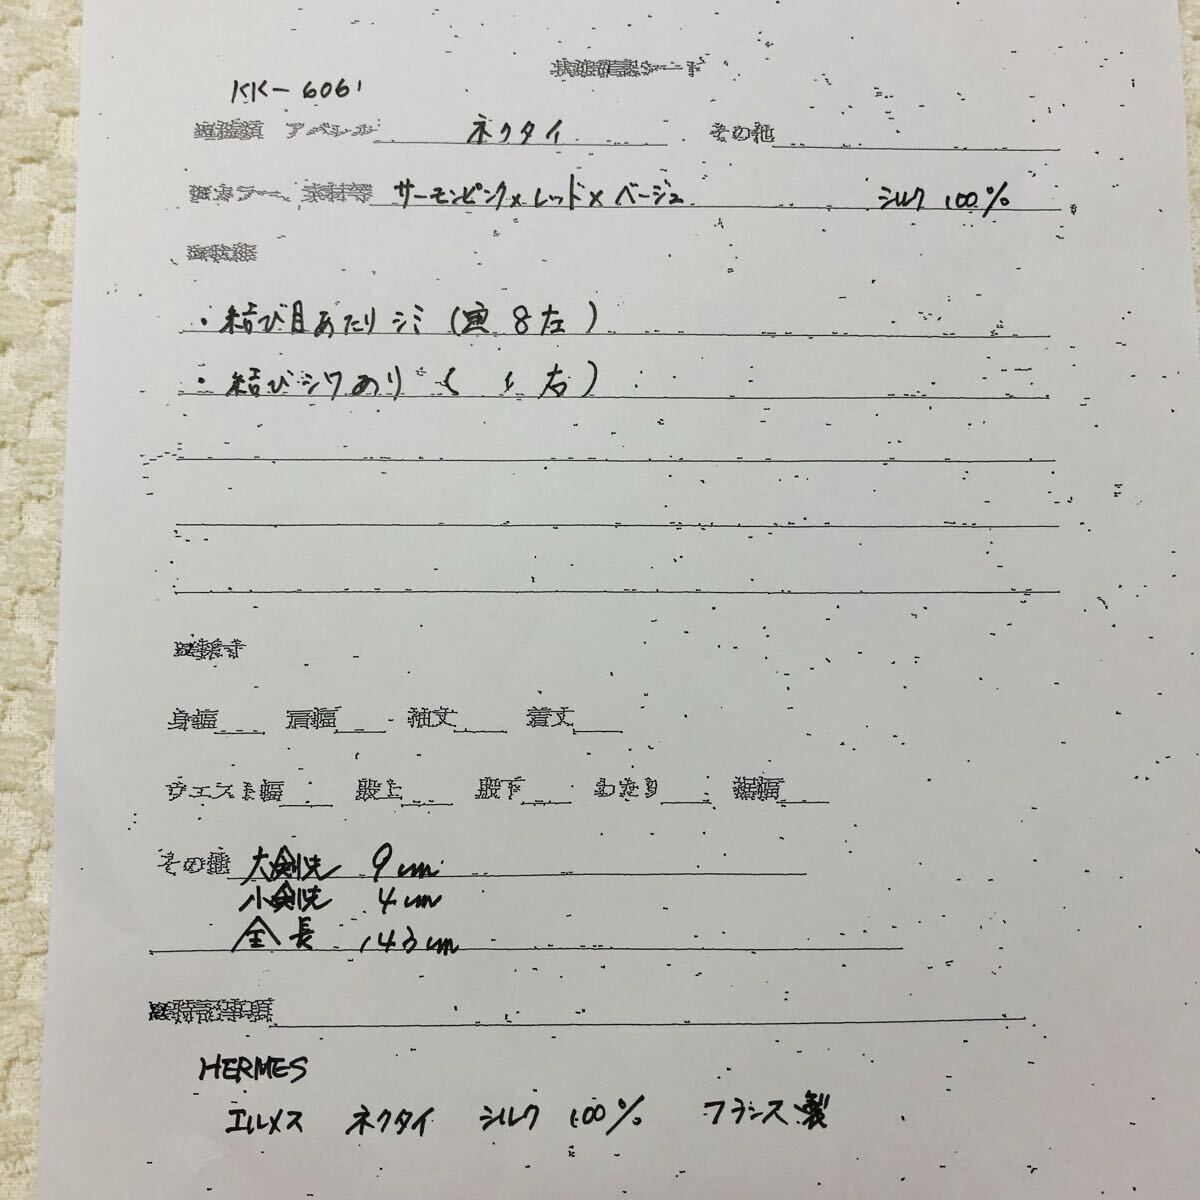 KK-6061
アパレル ネクタイ その他
カラー、素材等 サーモンピンク×レッド×ベージュ シルク 100%
・結び目あたりシミ (画 8 左)
・結びシワあり ( 〃 右)
身幅 肩幅 袖丈 着丈
ウエスト幅 股上 股下 わたり 裾幅
その他 大剣先 9cm
小剣先 4cm
全長 143cm
特記事項
HERMES
エルメス ネクタイ シルク 100% フランス製